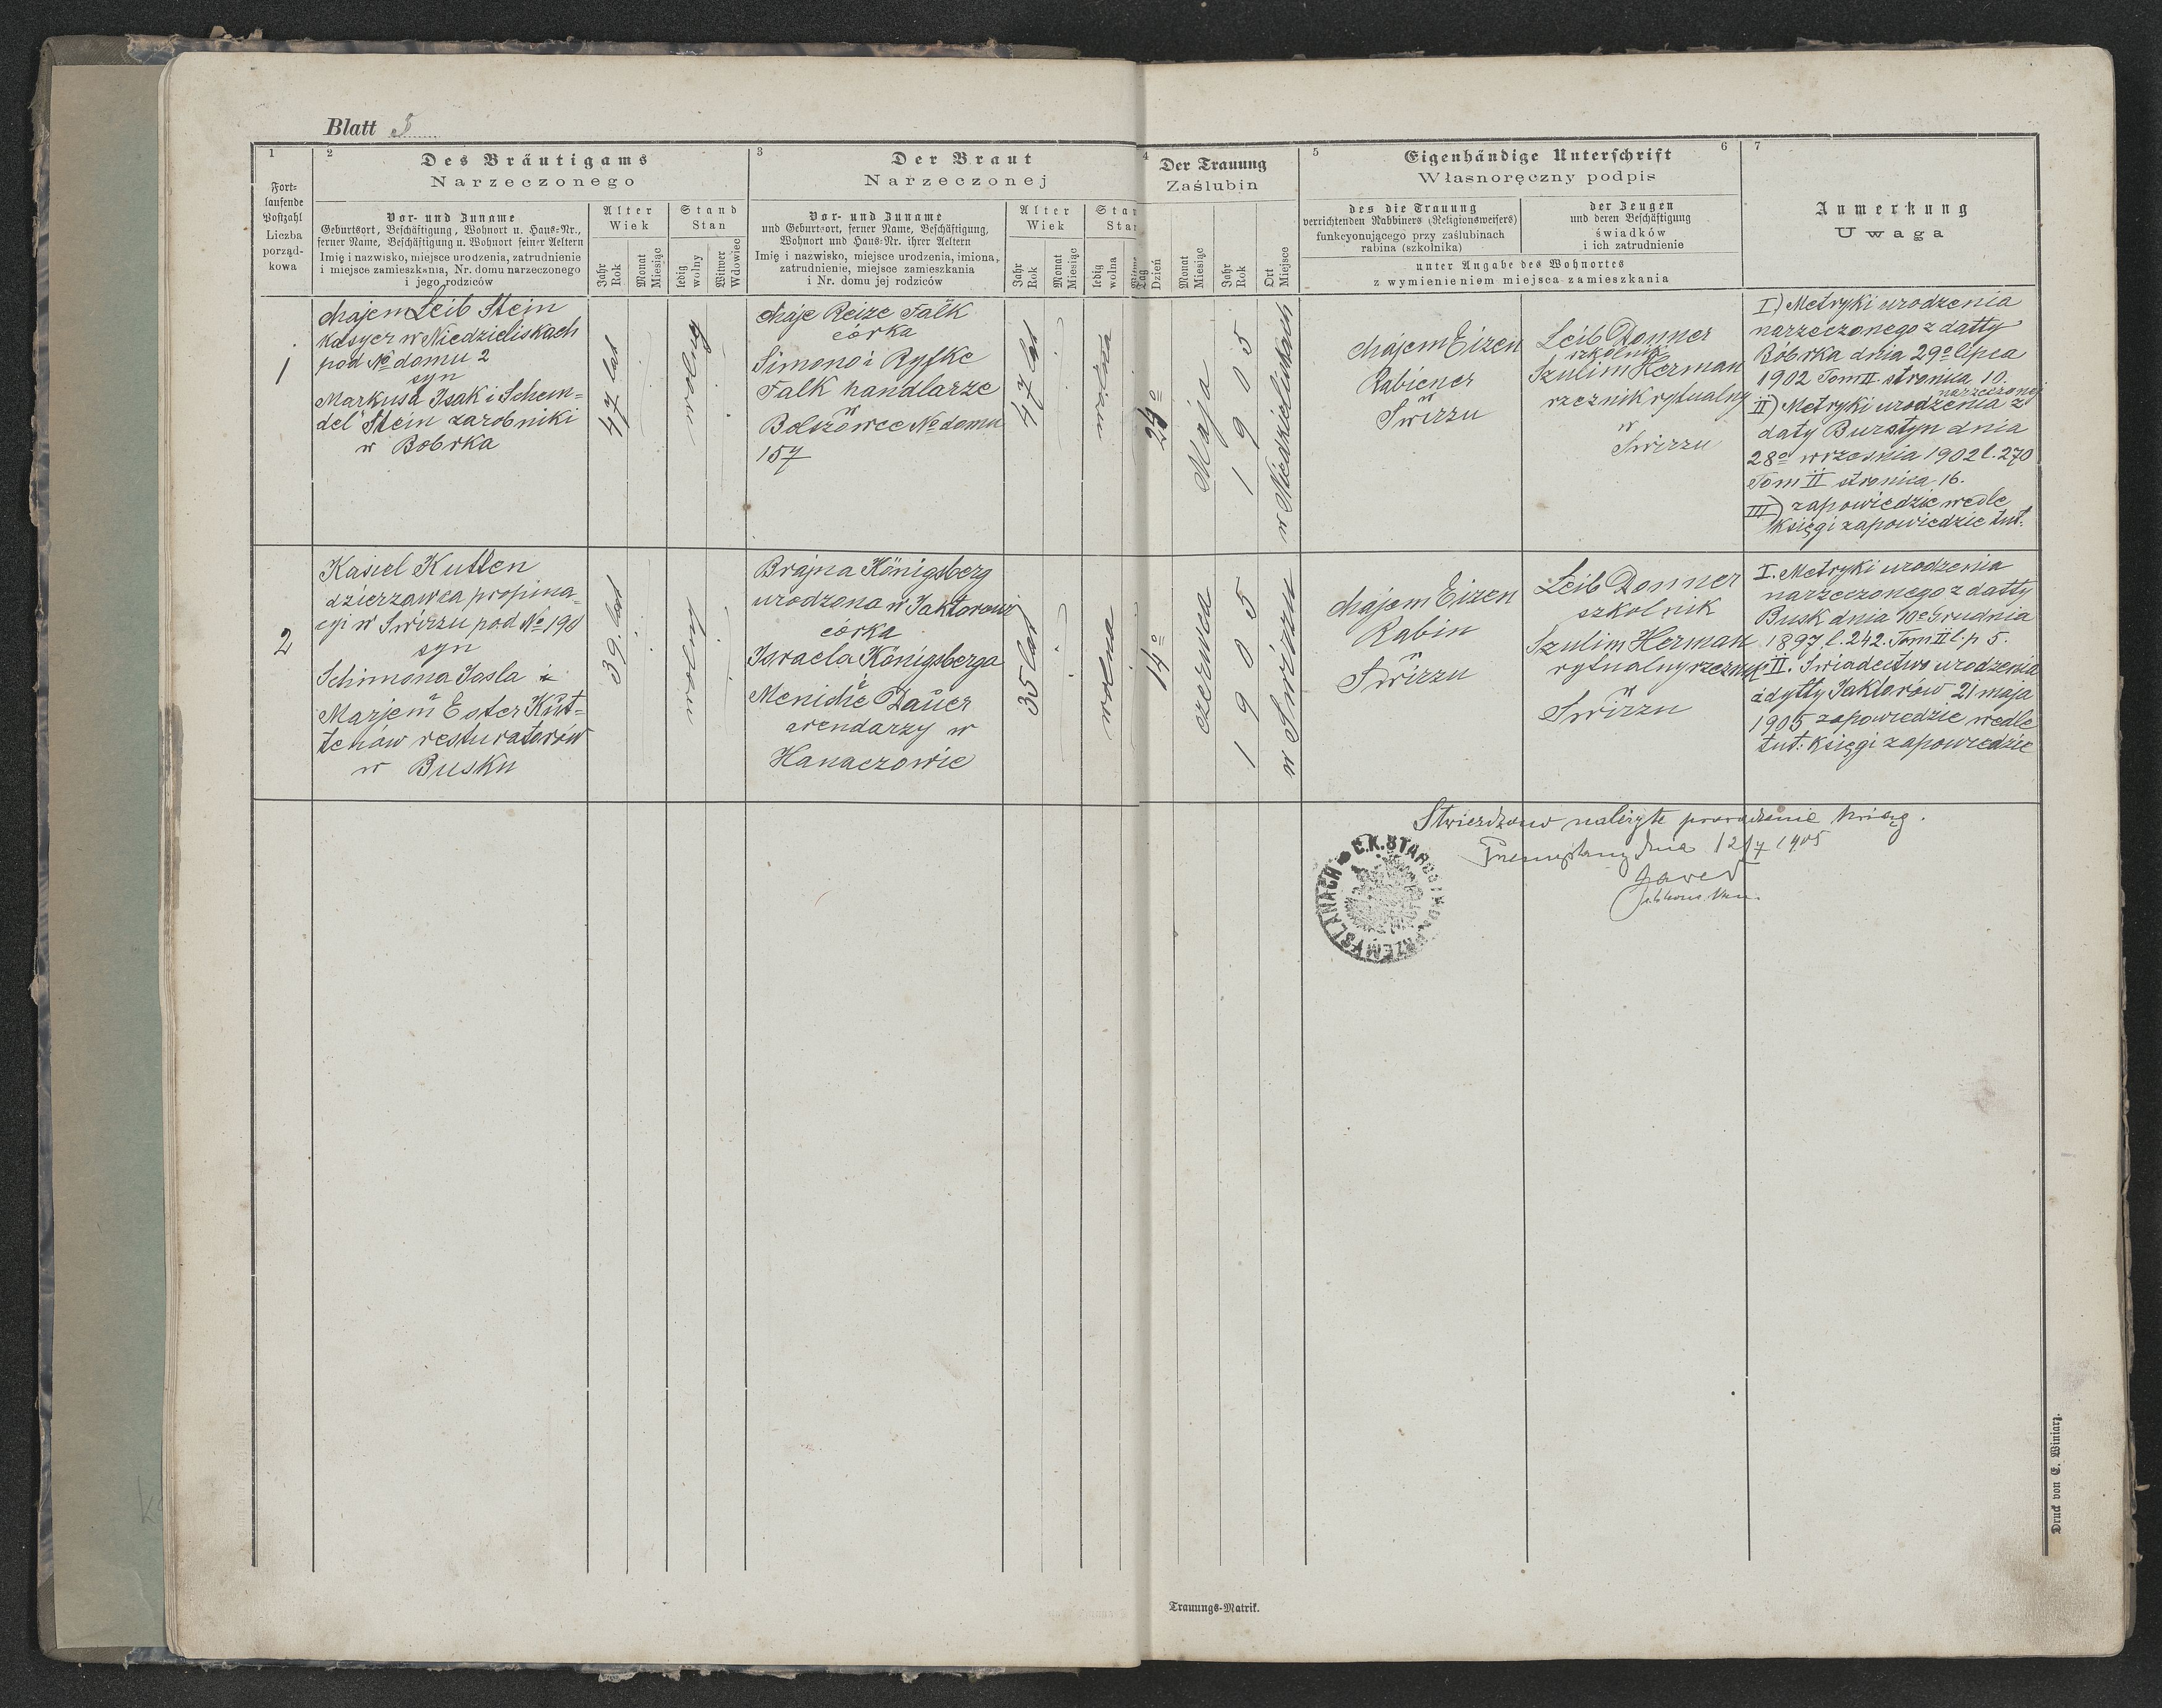 Blatt
1
2
Des Bräutigams
Narzeczonego
3
Der Braut
Narzeczonej
4
Der Trauung
Zaślubin
5
Eigenhändige Unterschrift
Własnoręczny podpis
6
7
Fort-
laufende
Postzahl
Liczba
porząd-
kowa
Vor- und Zuname
Geburtsort, Beschäftigung, Wohnort u. Haus-Nr.,
ferner Name, Beschäftigung u. Wohnort seiner Aeltern
Imię i nazwisko, miejsce urodzenia, zatrudnienie
i miejsce zamieszkania, Nr. domu narzeczonego
i jego rodziców
Alter
Wiek
Jahr
Rok
Monat
Miesiąc
Stand
Stan
ledig
wolny
Witwer
Wdowiec
Vor- und Zuname
und Geburtsort, ferner Name, Beschäftigung,
Wohnort und Haus-Nr. ihrer Aeltern
Imię i nazwisko, miejsce urodzenia, imiona,
zatrudnienie, miejsce zamieszkania
i Nr. domu jej rodziców
Alter
Wiek
Jahr
Rok
Monat
Miesiąc
Stan
Stan
ledig
wolna
Tag
Dzień
Monat
Miesiąc
Jahr
Rok
Ort
Miejsce
des die Trauung
verrichtenden Rabbiners (Religionsweisers)
funkcyonującego przy zaślubinach
rabina (szkolnika)
der Zeugen
und deren Beschäftigung
świadków
i ich zatrudnienie
unter Angabe des Wohnortes
z wymienieniem miejsca zamieszkania
Anmerkung
Uwaga
1
Chajem Leib Stein
kasyer w Niedzieliskach
pod No domu 2
syn
Markusa Isak i Schein=
del Stein zarobniki
w Bobrka
47 lat
Chaje Reize Falk
córka
Simono i Ryfke
Falk handlarze
w
Bolszowce No domu
157
47 lat
24o
Maja
1905
w Niedzieliskach
Chajem Eizen
Rabiener
w
Swirzu
Leib Donner
szkolnik
Szulim Herman
rzeznik rytualny
w
Swirzu
I) Metryki urodzenia
narzeczonego z datty
Bóbrka dnia 29o lipca
1902 Tom II. stronica 10.
narzeczonej
II) Metryki urodzenia z
daty Bursztyn dnia
28o wrzesnia 1902 l. 270
Tom II stronica 16.
III) zapowiedzie wedle
księgi zapowiedzie tut.
2
Kasiel Kutten
dzierzawca propina=
cyi w Swirzu pod No 190
syn
Schimona Josla i
Marjem Ester Kut=
tenów resturatorów
w Busku
39. lat
Brajna Königsberg
urodzona w Jaktorowie
córka
Israela Königsberga
i
Meniche Dauer
arendarzy w
Hanaczowie
35 lat
wolna
14o
czerwca
1905
w Swirzu
Chajem Eizen
Rabin
w
Swirzu
Leib Donner
szkolnik
Szulim Herman
rytualny rzeznik
w
Swirzu
I. Metryki urodzenia
narzeczonego z datty
Busk dnia 10o Grudnia
1897 l. 242. Tom II l. p 5.
II. Swiadectwo urodzenia
z dytty Jaktorów 21 maja
1905 zapowiedzie wedle
tut. księgi zapowiedzie
Stwierdzono należyte prowadzenie ksiąg.
Przemyślany dnia 12/7 1905
C.K. STAROSTWO W PRZEMYŚLANACH
Trauungs-Matrik.
Druck von E. Winiarz.